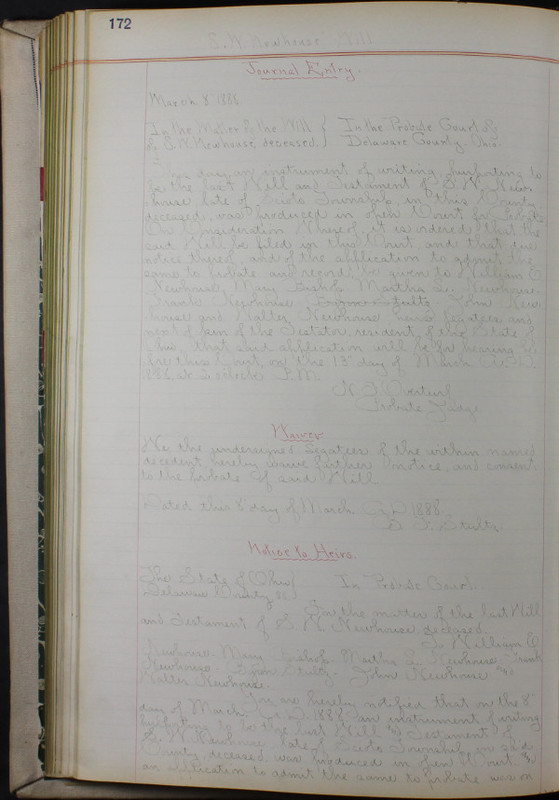 172
S. W. Newhouse Will
Journal Entry.
March 8" 1888.
In the Matter of the Will } In the Probate Court of
of S. W. Newhouse deceased. } Delaware County Ohio.
This day an instrument of writing, purporting to
be the last Will and Testament of S. W. New
house late of Scioto Township, in this County
deceased, was produced in open Court for Probate
On Consideration thereof, it is ordered that the
said Will be filed in this Court and that due
notice thereof, and of the application to admit the
same to probate and record, be given to William
Newhouse, Mary Bishop, Martha L. Newhouse
Frank Newhouse Stults John New
house and Walter Newhouse
of the Testator, resident of the State of
Ohio, that said application will be for hearing be
fore this Court, on the 13" day of March A.D.
1888 at 2 oclock P.M.
Probate Judge
Waiver
We the undersigned Legatees of the within named
decedent, hereby waive further notice, and consent
to the probate of said Will
Dated this 8 day of March A.D. 1888.
Stults
Notice to Heirs.
The State of Ohio }
Delaware County ss } In Probate Court.
In the matter of the last Will
and Testament of S. W. Newhouse deceased.
To William
Newhouse Mary Bishop Martha L. Newhouse Frank
Newhouse Stultz John Newhouse and
Walter Newhouse.
You are hereby notified that on the 8"
day of March A.D. 1888 an instrument of writing
purporting to be the last Will and Testament of
S. W. Newhouse late of Scioto Township in said
County deceased was produced in open Court and
an application to admit the same to probate was on